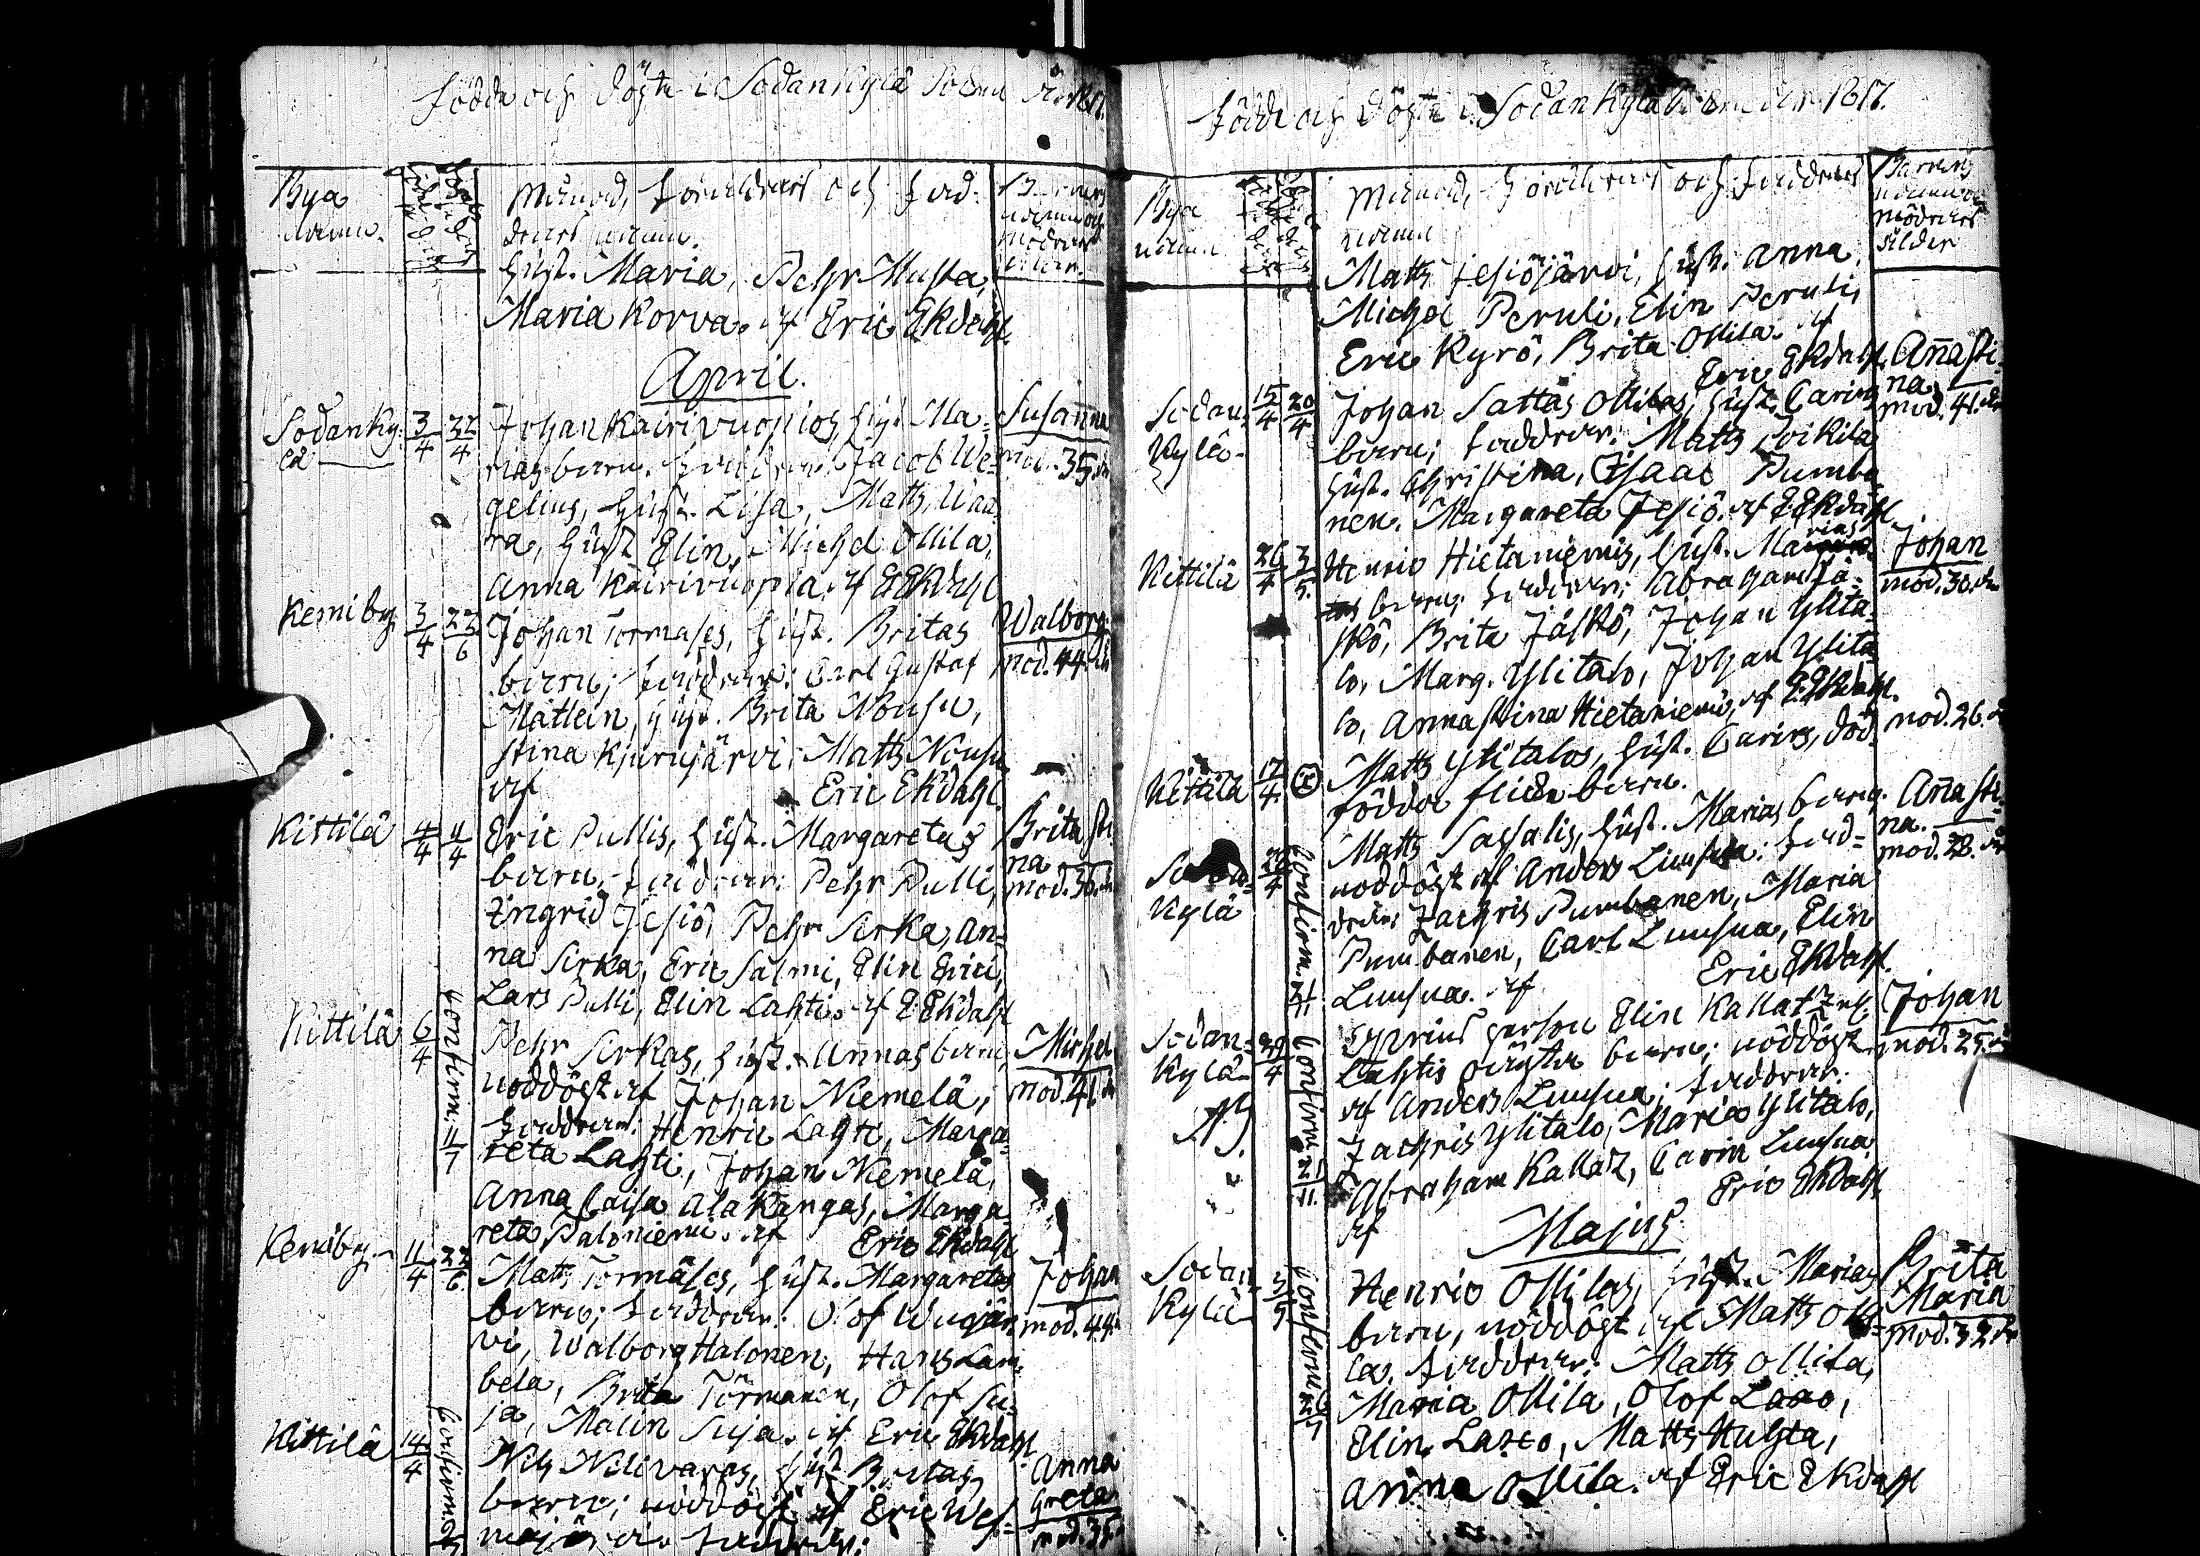 Födde och döpte i Sodankylä Soken
Bya
namn.
Månad, föräldrars och fad-
drars namn.
Barnens
namn och
mödrars
ålder.
hust. Maria, Pehr Musta,
Maria Korva. af Eric Ekdahl.
April.
Sodanky-
lä
3/4
22/4
Johan Kairivuopios, hust. Ma-
rias barn. Faddrar: Jacob We-
gelius, hust. Lisa, Matts Waa-
ra, hust Elin, Michel Ollila,
Anna Kairivuopia. af E Ekdahl
Susanna
mod. 35. år
Kemiby
3/4
22/6
Johan Tormases, hust. Britas
barn; faddrar: Carl Gustaf
Mattlein, hust. Brita Nousu,
Stina Kjurujärvi, Matts Nousu
af Eric Ekdahl.
Walborg
mod. 44. år
Kittilä
4/4
11/4
Eric Pullis, hust. Margaretas
barn. Faddrar: Pehr Pulli,
Ingrid Jesiö, Pehr Sirka, An-
na Sirka, Eric Salmi, Elin Erici,
Lars Pulli, Elin Lahti. af E Ekdahl
Brita Sti-
na
mod. 36. år
Kittilä
6/4
Confirm. 11/7
Pehr Sirkas, hust. Annas barn,
nöddöpt af Johan Niemelä;
Faddrar: Henric Lahti, Marga-
reta Lahti, Johan Niemelä,
Anna Caisa Alakangas, Marga-
reta Paloniemi. af Eric Ekdahl
Michel
mod. 41. år
Kemiby
11/4
22/6.
Matts Tormäses, hust. Margaretas
barn; faddrar: Olof Wuojär-
vi, Walborg Halonen, Hans Lam-
bela, Brita Törmänen, Olof Su-
ja, Malin Suja. af Eric Ekdahl
Johan
mod. 44. år
Kittilä
14/4
Confirm.
Nils Nilivaras, hust. Britas
barn; nöddöpt af Eric Wes-
majärvi. faddrar:
Anna
Greta
mod. 35
Födde och döpte i Sodankylä Soken år 1817.
Bya
namn
Månad, föräldrars och faddrars
namn
Barnens
namn och
mödrars
ålder
Matts Jesiöjärvi, hust. Anna,
Michel Peruli, Elin Peruli,
Eric Kyrö, Brita Ollila. af
Eric Ekdahl.
Sodan-
kylä
15/4
20/4
Johan Sattas Ollilas, hust. Carins
barn; faddrar: Matts Poikila
hust. Christina, Isaac Pumba-
nen, Margareta Jesiö. af E Ekdahl
Anna Sti-
na
mod. 41. år
Kittilä
26/4
3/5.
Henric Hietaniemis, hust. Marias
barn; faddrar: Abraham Jä-
skö, Brita Jäskö, Johan Ylita-
lo, Marg. Ylitalo, Johan Ylita-
lo, Anna Stina Hietaniemi, af E Ekdahl.
Johan
mod. 30. år
Kittilä
17/4
Matts Ylitalos, hust. Carins, död-
födda flicke barn.
mod. 26. år
Sodan-
kylä
Confirm. 21/11
Matts Sassalis, hust. Marias barn.
nöddöpt af Anders Luusua. Fad-
drar: Zachris Pumbanen, Maria
Pumbanen, Carl Luusua, Elin
Luusua. af Eric Ekdahl.
Anna Sti-
na.
mod. 28. år
Sodan-
kylä
Confirm. 21/11.
Elin Kallatz och
Lahtis oägta barn; nöddöpt
af Anders Luusua; faddrar:
Zachris Ylitalo, Maria Ylitalo,
Abraham Kallatz, Carin Luusua
af Eric Ekdahl
Johan
mod. 25. år
Majus
Sodan-
kylä
Henric Ollilas, hust. Marias
barn, nöddöpt af Matts Olli-
la. faddrar: Matts Ollila,
Maria Ollila, Olof Laxo,
Elin Laxo, Matts Huhta,
Anna Ollila. af Eric Ekdahl
Brita
Maria
mod. 32 år